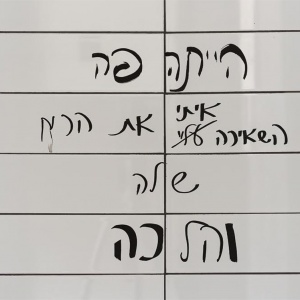 הייתה פה
איתי
השאירה עליי את הריח
שלה
והלכה